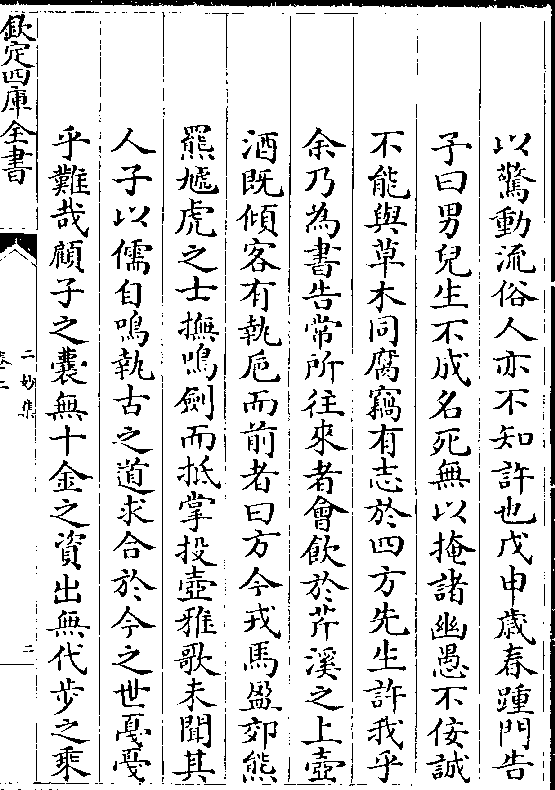 以驚動流俗人亦不知許也戊申歲春踵門告
子曰男兒生不成名死無以掩諸幽愚不佞誠
不能與草木同腐竊有志於四方先生許我乎
余乃為書告常所往來者會飲於芹溪之上壺
酒既傾客有執巵而前者曰方今戎馬盈郊熊
羆虓虎之士撫鳴劍而抵掌投壺雅歌未聞其
人子以儒自鳴執古之道求合於今之世戞戞
乎難哉顧子之囊無十金之資出無代步之乘
欽定四庫全書
二妙集
卷二
二